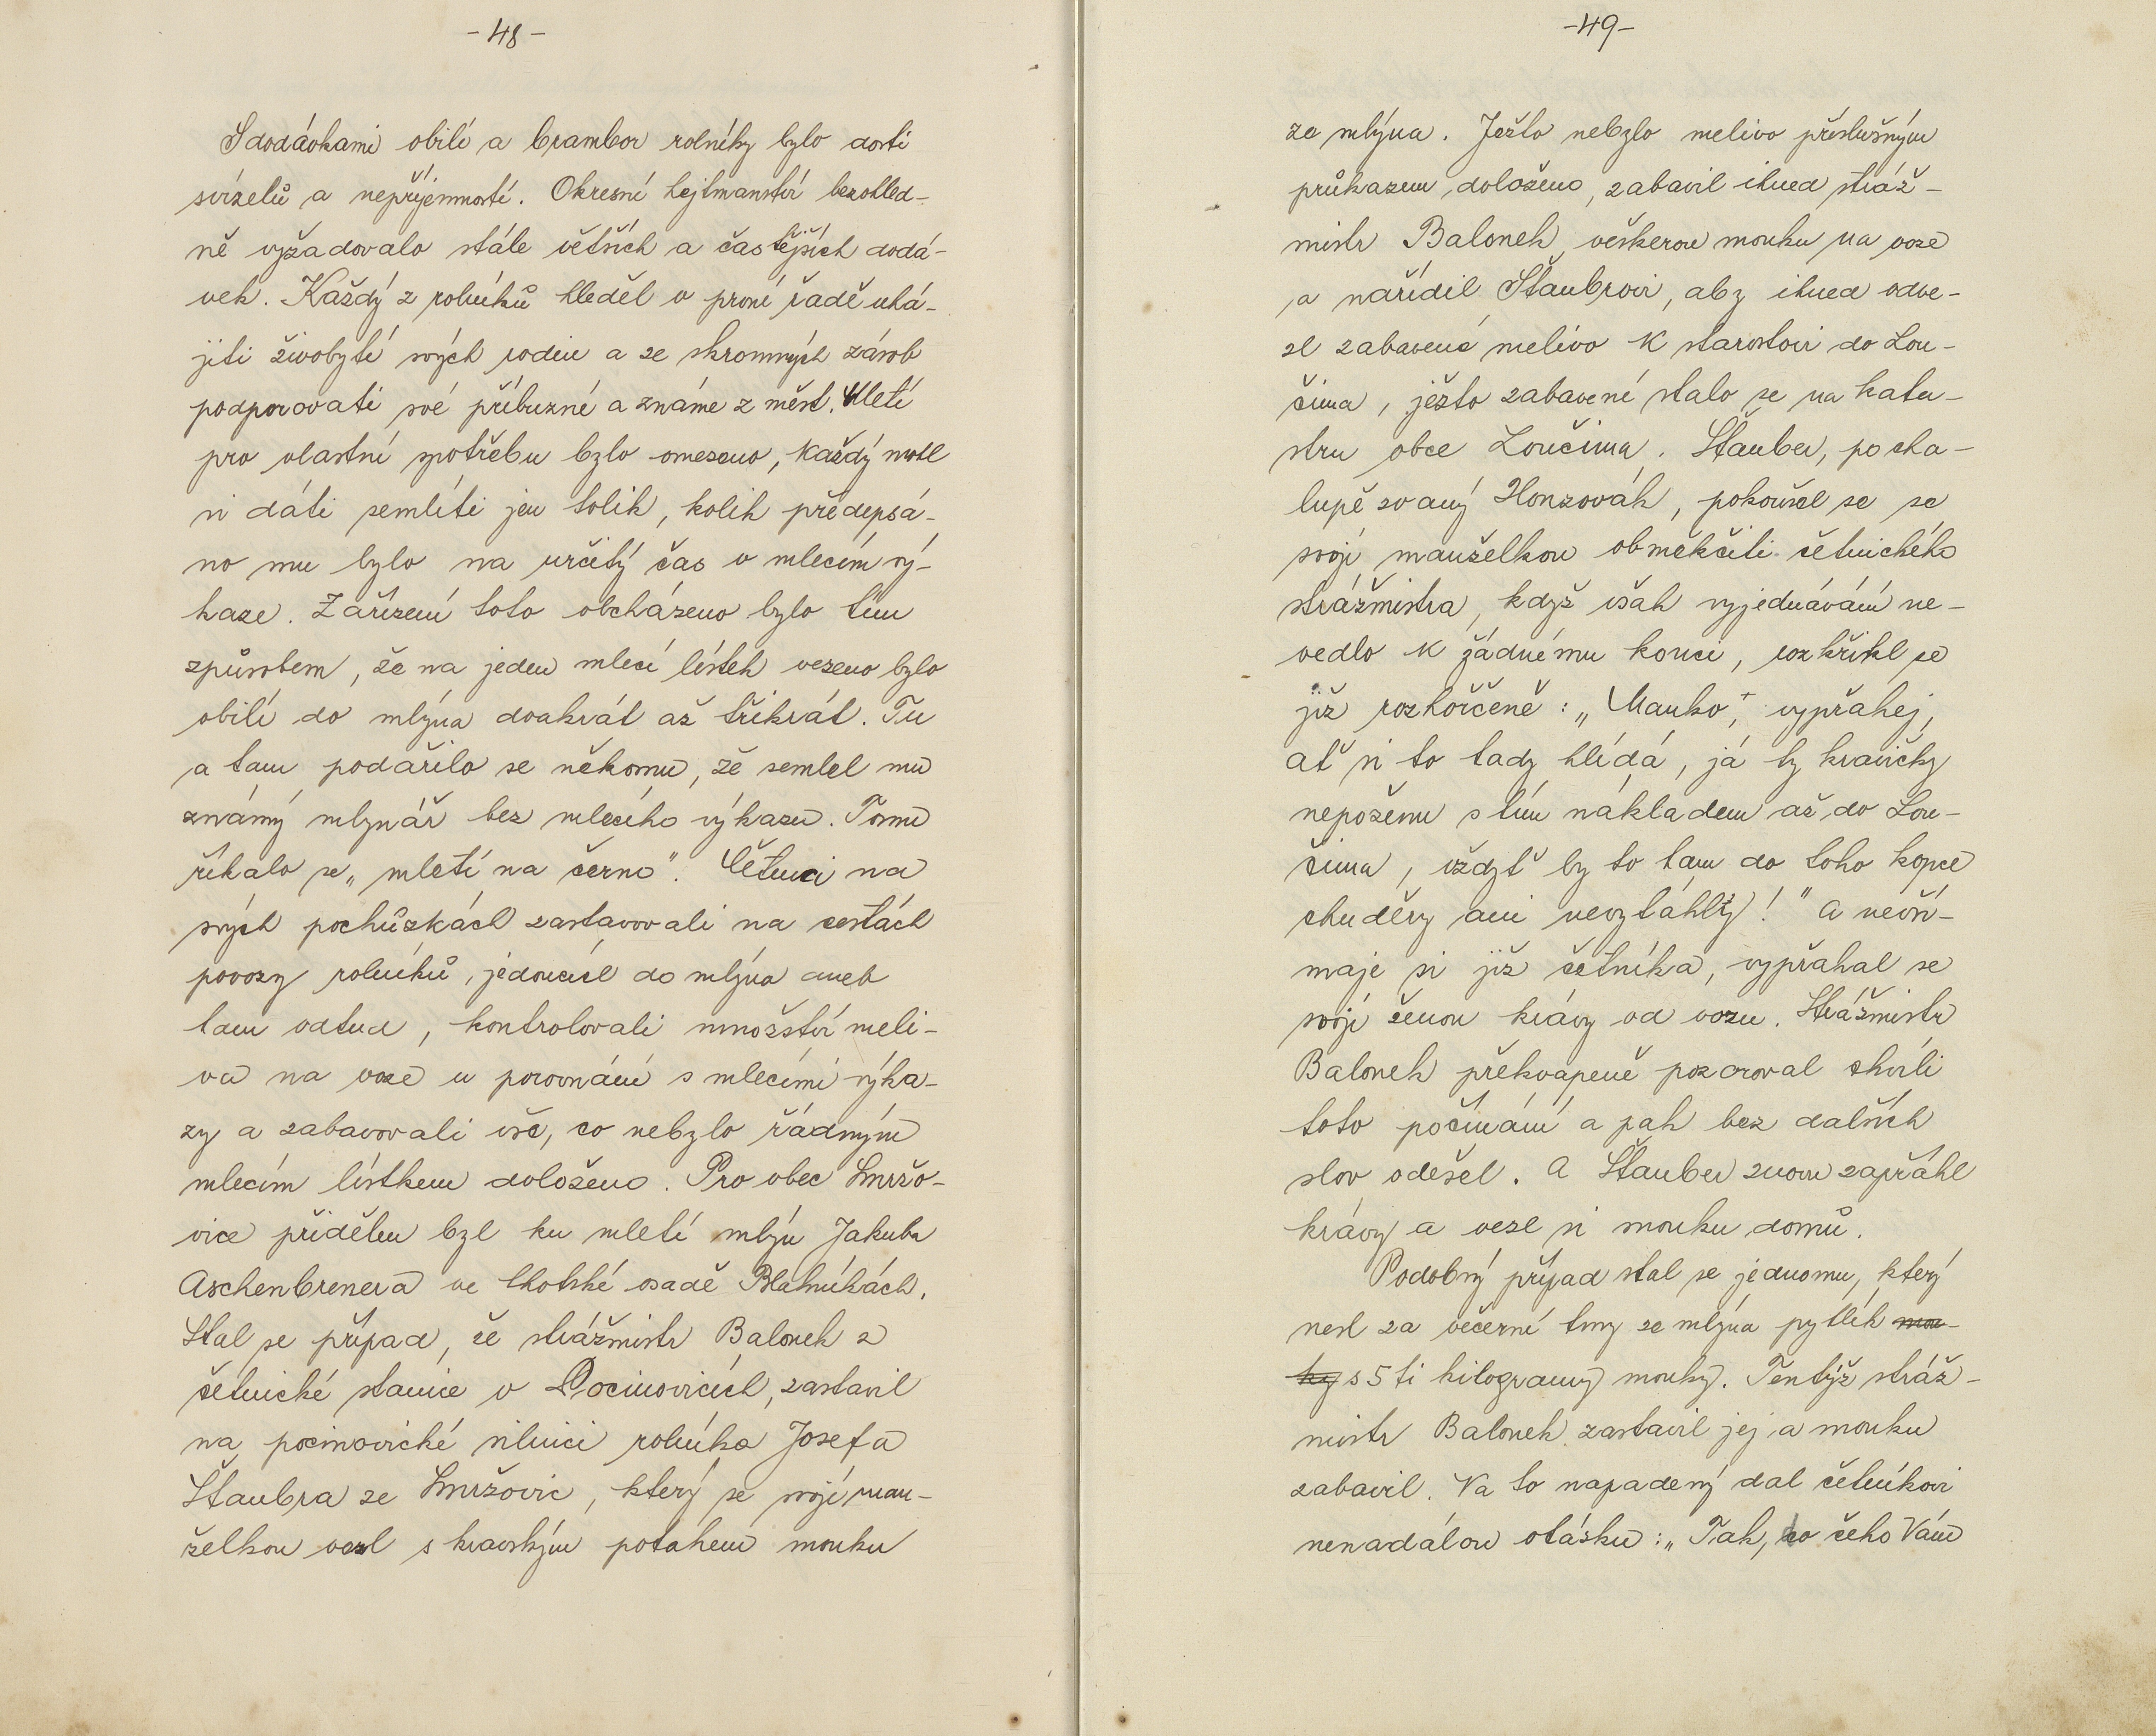 - 48 -
S dodávkami obilí a brambor rolníky bylo dosti
svízelů a nepříjemností. Okresní hejtmanství bezohled-
ně vyžadovalo stále větších a častějších dodá-
vek. Každý z rolníků hleděl v první řadě uhá-
jiti živobytí svých rodin a ze skromných zásob
podporovati své příbuzné a známe z měst. Mletí
pro vlastní spotřebu bylo omezeno, každý mohl
si dáti semlíti jen tolik, kolik předepsá-
no mu bylo na určitý čas v mlecím vý-
kaze. Zařízení toto obcházeno bylo tím
způsobem, že na jeden mlecí lístek vezeno bylo
obilí do mlýna dvakrát až třikrát. Tu
a tam podařilo se někomu, že semlel mu
známý mlynář bez mlecího výkazu. Tomu
říkalo se „mletí na černo". Četníci na
svých pochůzkách zastavovali na cestách
povozy rolníků, jedoucích do mlýna aneb
tam odtud, kontrolovali množství meli-
va na voze v porovnání s mlecími výka-
zy a zabavovali vše, co nebylo řádným
mlecím lístkem doloženo. Pro obec Smržo-
vice přidělen byl ku mletí mlýn Jakuba
Aschenbrenera ve lhotské osadě Blatnikách.
Stal se případ, že strážmistr Balonek z
četnické stanice v Pocinovicích, zastavil
na pocinovické silnici rolníka Josefa
Štaubra ze Smržovic, který se svojí man-
želkou vezl s kravským potahem mouku
-49-
ze mlýna. Ježto nebylo melivo příslušným
průkazem doloženo, zabavil ihned stráž-
mistr Balonek veškerou mouku na voze
a nařídil Štaubrovi, aby ihned odve-
zl zabavené melivo k starostovi do Lou-
čima, ježto zabavení stalo se na kata-
stru obce Loučima. Štauber, po cha-
lupě zvaný Honzovák, pokoušel se se
svojí manželkou obměkčiti četnického
strážmistra, když však vyjednávání ne-
vedlo k žádnému konci, rozkřikl se
již rozhořčeně: „Manko", vypřahej,
ať si to tady hlídá, já ty kravičky
nepoženu s tím nákladem až do Lou-
čima, vždyť by to tam do toho kopce
chuděry ani nevytáhly!" A nevší-
maje si již četníka, vypřahal se
svojí ženou krávy od vozu. Strážmistr
Balonek překvapeně pozoroval chvíli
toto počínání a pak bez dalších
slov odešel. A Štauber znovu zapřáhl
krávy a vezl si mouku domů.
Podobný případ stal se jednomu, který
nesl za večerní tmy ze mlýna pytlík mou-
ky s 5 ti kilogramy mouky. Tentýž stráž-
mistr Balonek zastavil jej a mouku
zabavil. Na to napadený dal četníkovi
nenadálou otázku: „Tak, do čeho Vám